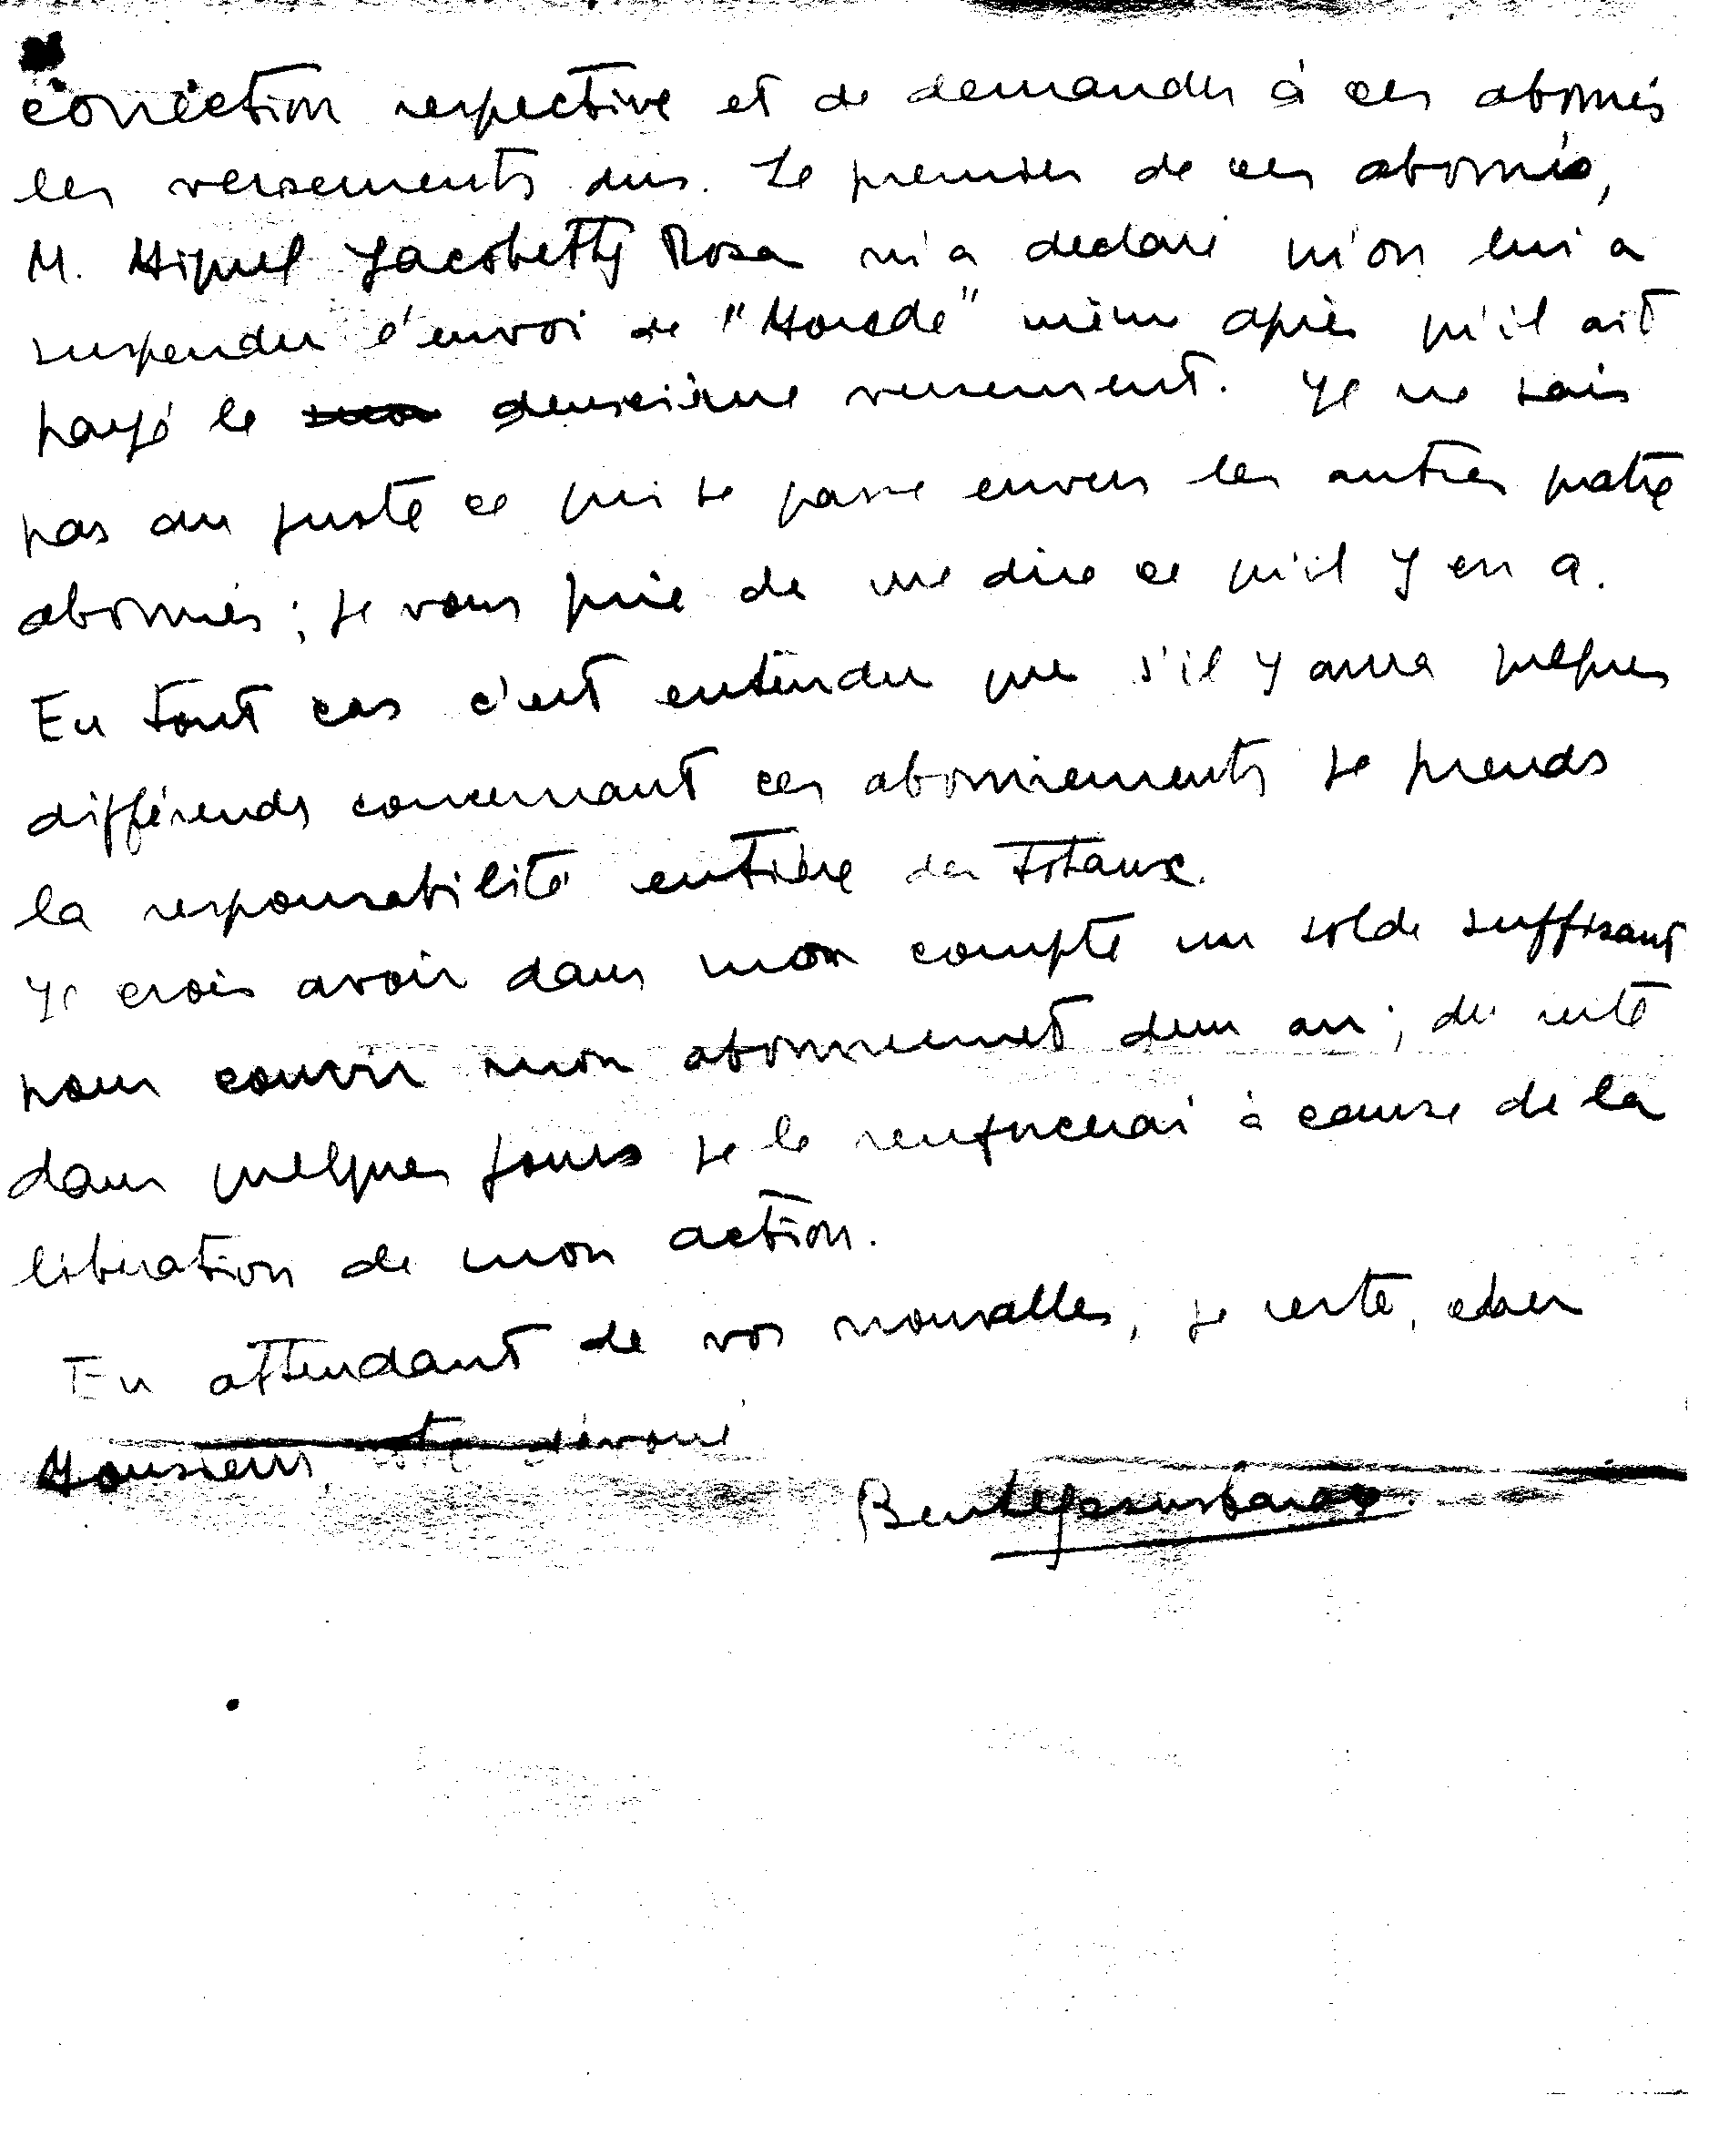 correction respective et de demander à ces abonnés
les versements dus. Le premier de ces abonnés,
M. Miguel Jacobetty Rosa m'a declaré qu'on lui a
suspendu l'envoi de "Monde" même après qu'il ait
payé le deuxième versement. Je ne sais
pas au juste ce qui se passe envers les autres quatre
abonnés; je vous prie de me dire ce qu'il y en a.
En tout cas c'est entendu que s'il y aura quelques
différends concernant ces abonnements je prends
la responsabilité entière des totaux.
Je crois avoir dans mon compte un solde suffisant
pour couvrir mon abonnement d'un an; du reste
dans quelques jours je le renforcerai à cause de la
libération de mon action.
En attendant de vos nouvelles, je reste, cher
Monsieur, votre dévoué